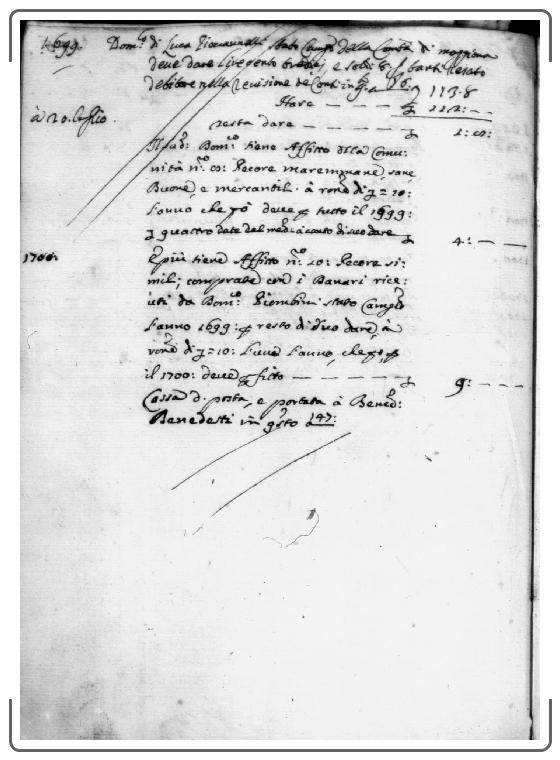 1699. Dom.co di Luca Giovannelli stato Camp.o della Com.tà di moggiona
deve dare lire cento tredici, e soldi 8 p. tanti restato
debitore nella Revisione de Conti in q.o a 86. 113.8
Hare — — — £ 112: —
à 20. luglio.
resta dare — — — — £ 1: 8:
Il sud.o Dom.co tiene Affitto della Comu-
nità n.o 8: Pecore maremmane, sane,
Buone, e mercantil. à ron.e di £ = 10:
l'anno che p.o deve p tutto il 1699:
£ quattro date dal med.o à conto di suo dare £ 4: — —
1700: E più tiene Affitto n.o 10: Pecore si-
mil; comprate con i Danari rice-
uti da Dom.co Piombini stato Camp.o
l'anno 1699: p resto di suo dare, à
ron.e di £ = 10: l'anno, che p.o, p
il 1700: deve p fitto — — — — £ 9: — — —
Cassa d. posta, e portata à Bened.o
Benedetti in q.sto a 147: